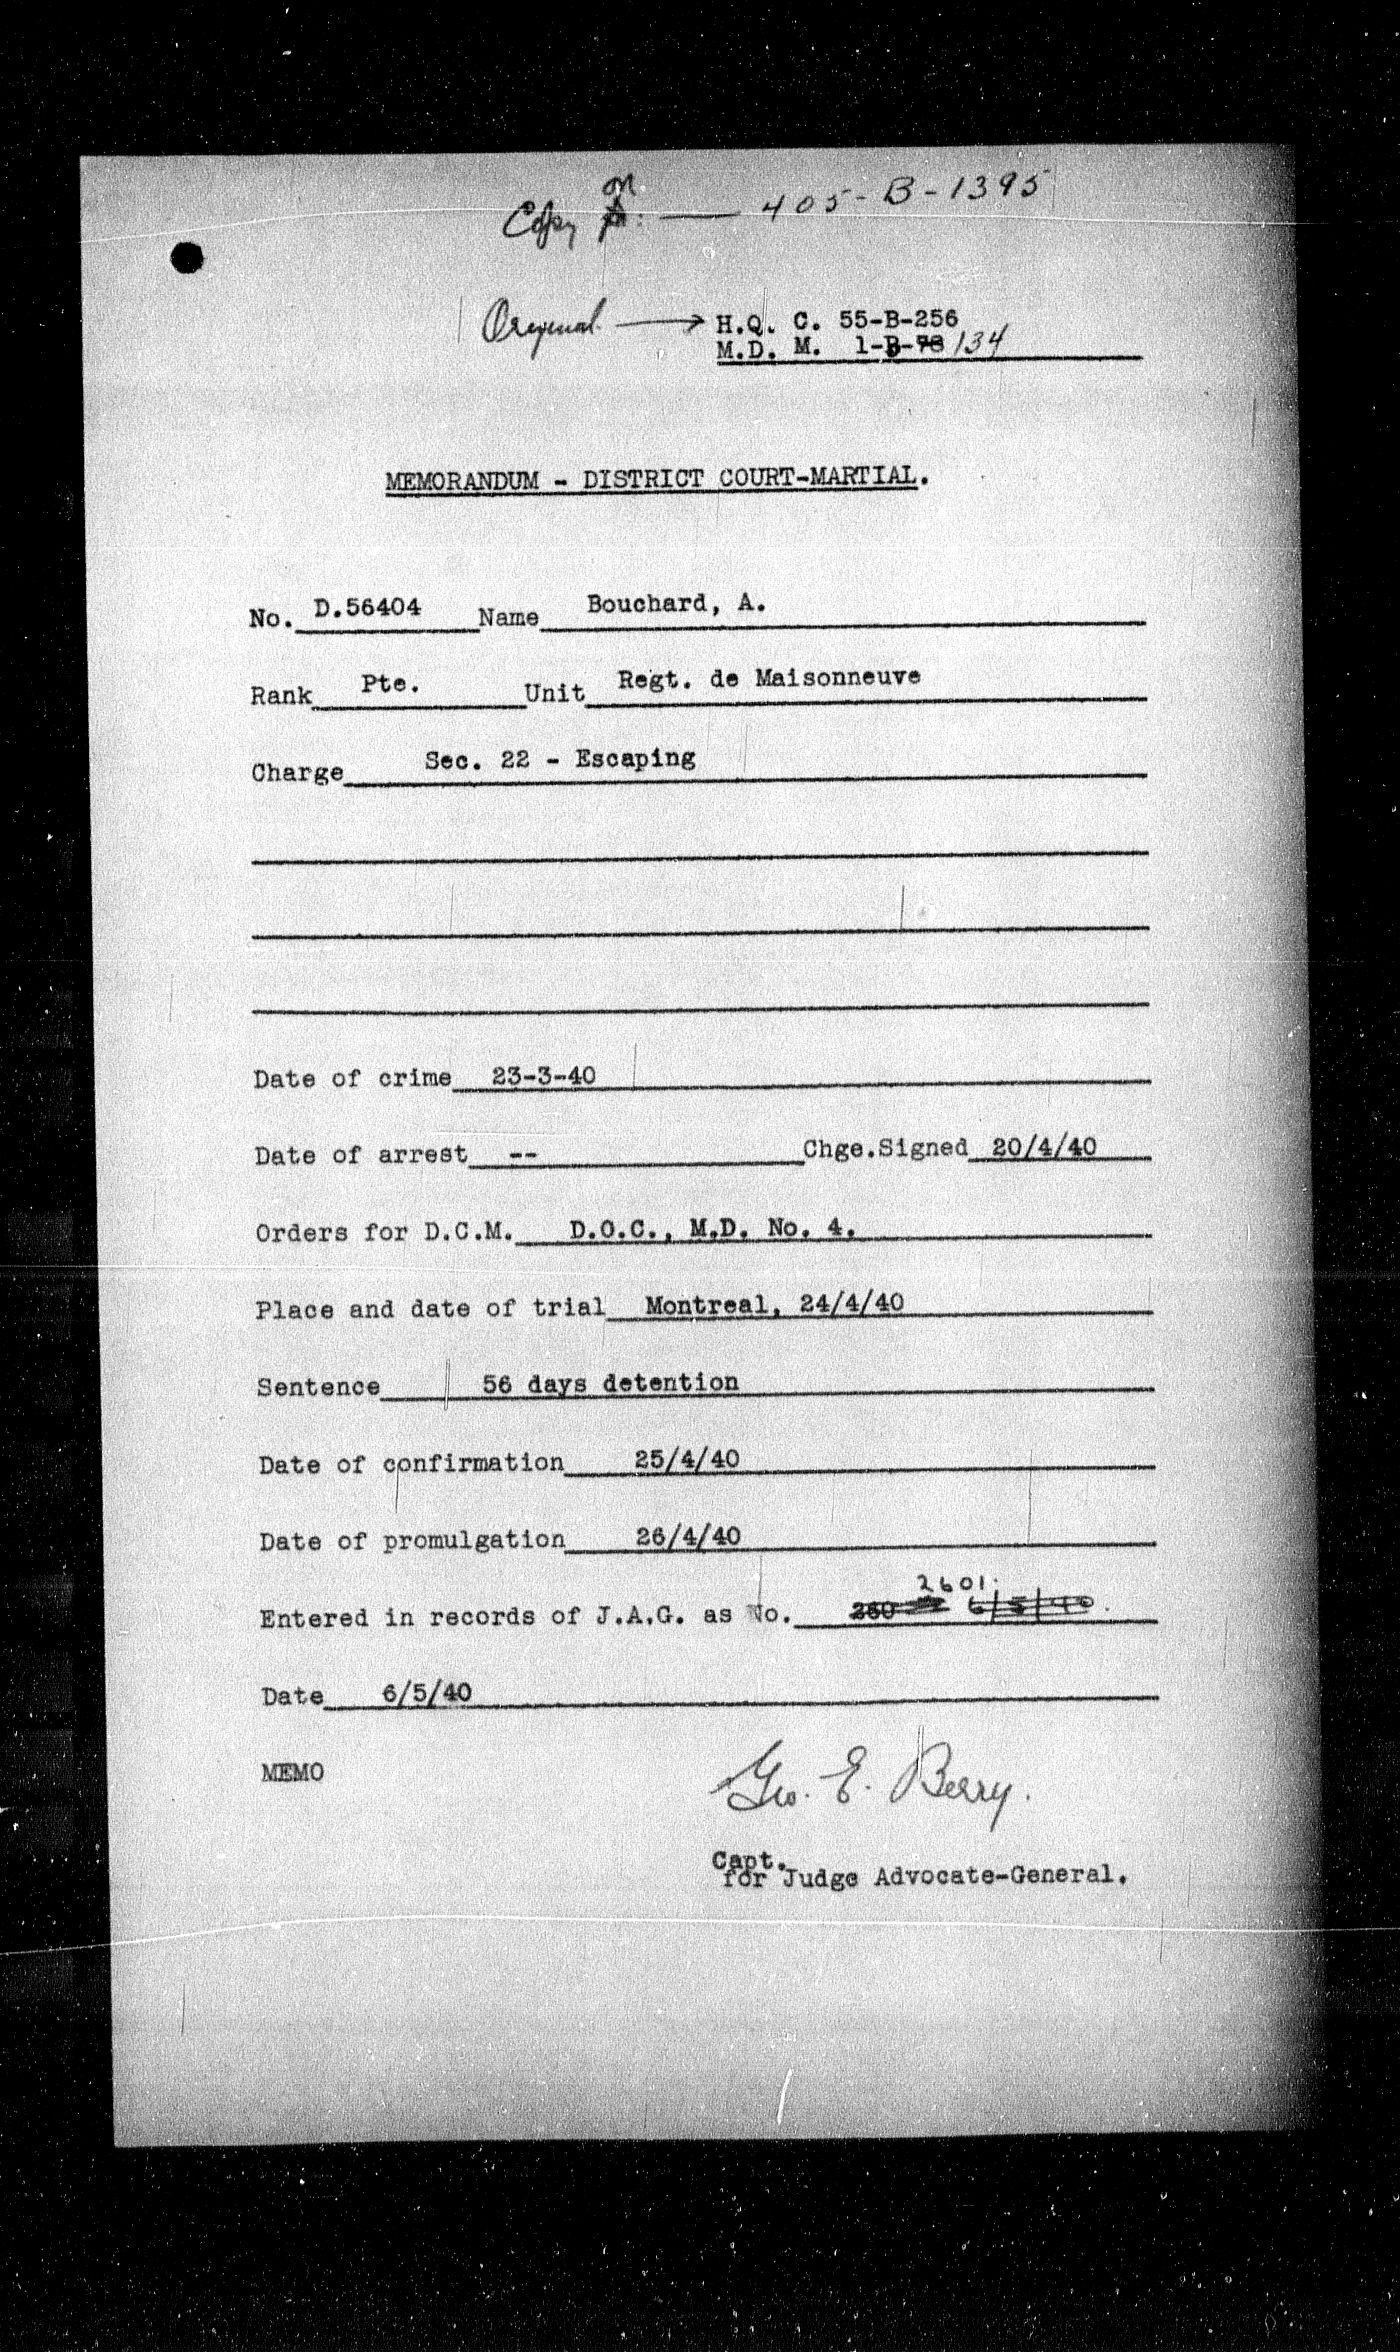 Copy on — 405-B-1395
Original → H.Q. C. 55-B-256
M.D. M. 1-B-78 134
MEMORANDUM - DISTRICT COURT-MARTIAL.
No. D.56404 Name Bouchard, A.
Rank Pte. Unit Regt. de Maisonneuve
Charge Sec. 22 - Escaping
Date of crime 23-3-40
Date of arrest -- Chge.Signed 20/4/40
Orders for D.C.M. D.O.C., M.D. No. 4.
Place and date of trial Montreal, 24/4/40
Sentence 56 days detention
Date of confirmation 25/4/40
Date of promulgation 26/4/40
2601.
Entered in records of J.A.G. as No. 6/5/40.
Date 6/5/40
MEMO
Geo. E. Berry.
Capt.
for Judge Advocate-General.